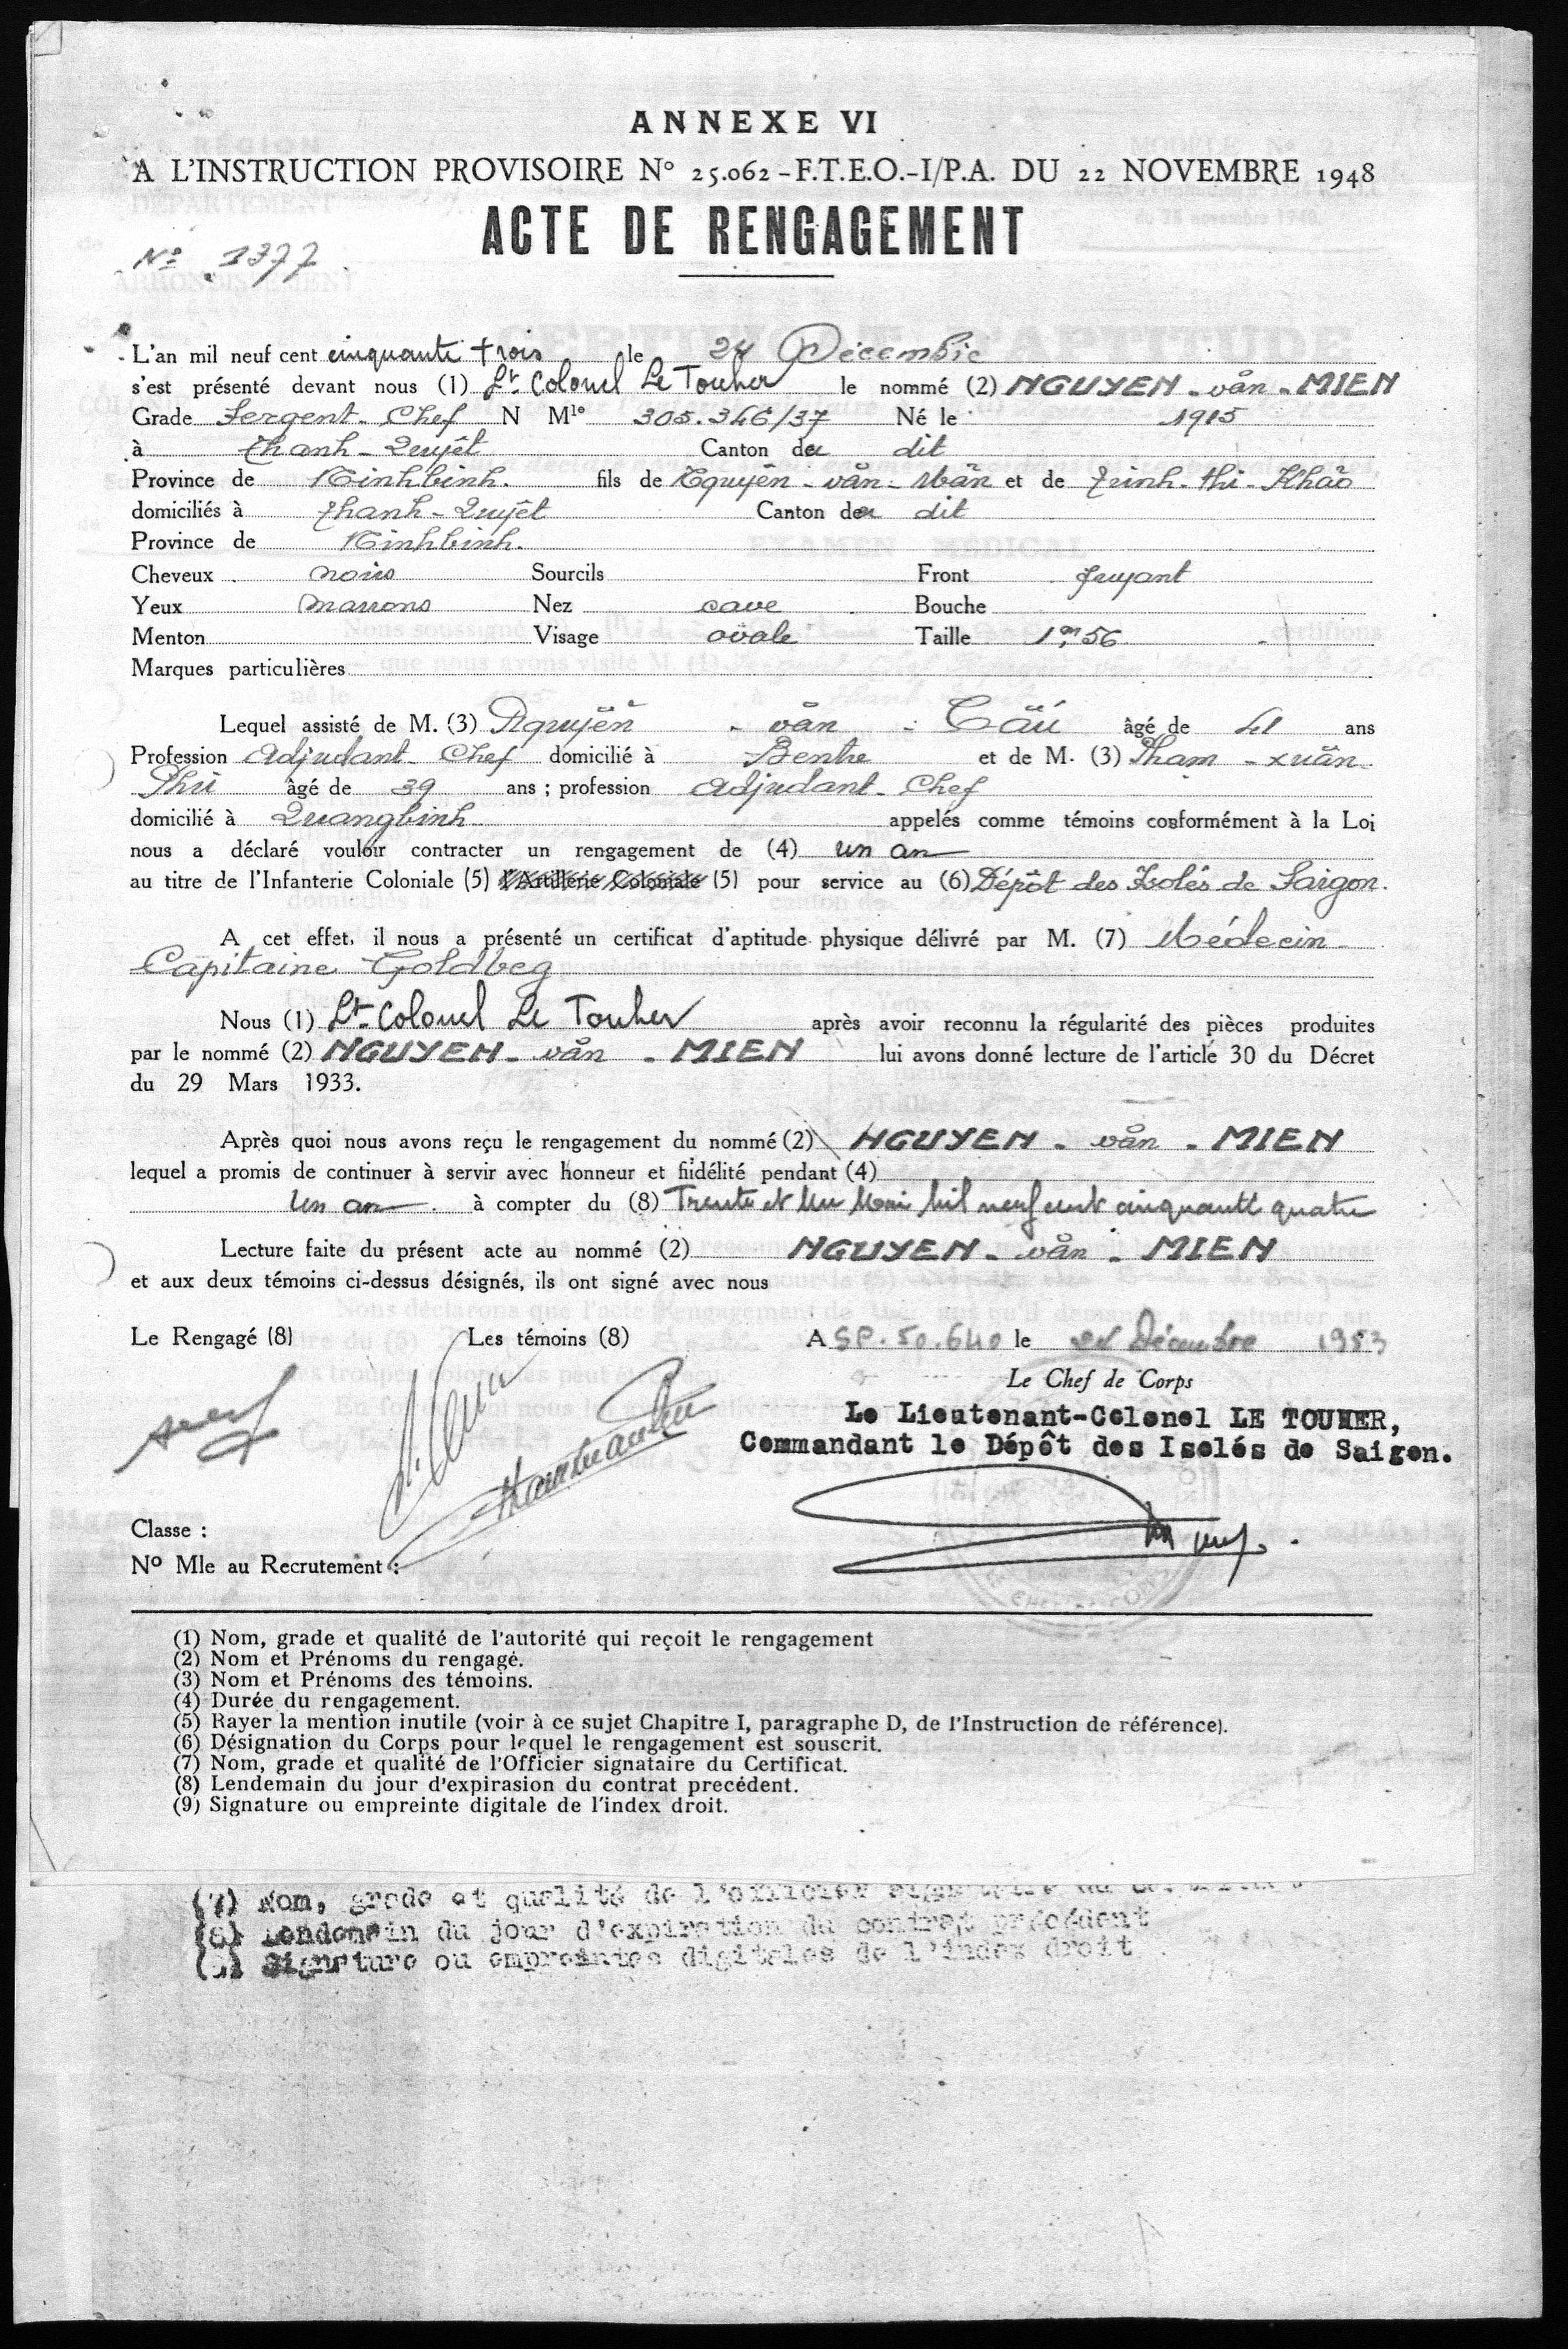 ANNEXE VI
A L'INSTRUCTION PROVISOIRE N° 25.062 - F.T.E.O.-I/P.A. DU 22 NOVEMBRE 1948
ACTE DE RENGAGEMENT
N° 1377
L'an mil neuf cent cinquante trois le 24 Décembre
s'est présenté devant nous (1) Lt Colonel Le Touher le nommé (2) NGUYEN - văn - MIEN
Grade Sergent - Chef N Mle 305.346/37 Né le 1915
à Thanh - Quyêt Canton de dit
Province de Ninhbinh. fils de Nguyên - văn - Mân et de Trinh - thi - Khảo
domiciliés à Thanh - Quyêt Canton de dit
Province de Ninhbinh.
Cheveux noirs Sourcils Front fuyant
Yeux marrons Nez cave Bouche
Menton Visage ovale Taille 1m,56
Marques particulières
Lequel assisté de M. (3) Nguyên - văn - Câú âgé de 41 ans
Profession Adjudant - Chef domicilié à Bentre et de M. (3) Pham - xuân -
Phú âgé de 39 ans ; profession Adjudant - Chef
domicilié à Quangbinh appelés comme témoins conformément à la Loi
nous a déclaré vouloir contracter un rengagement de (4) un an
au titre de l'Infanterie Coloniale (5) l'Artillerie Coloniale (5) pour service au (6) Dépôt des Isolés de Saigon.
A cet effet, il nous a présenté un certificat d'aptitude physique délivré par M. (7) Médecin
Capitaine Goldbeg
Nous (1) Lt-Colonel Le Touher après avoir reconnu la régularité des pièces produites
par le nommé (2) NGUYEN - văn - MIEN lui avons donné lecture de l'article 30 du Décret
du 29 Mars 1933.
Après quoi nous avons reçu le rengagement du nommé (2) NGUYEN - văn - MIEN
lequel a promis de continuer à servir avec honneur et fiidélité pendant (4)
un an à compter du (8) Trente et Un Mai Mil neuf cent cinquante quatre
Lecture faite du présent acte au nommé (2) NGUYEN - văn - MIEN
et aux deux témoins ci-dessus désignés, ils ont signé avec nous
Le Rengagé (8) Les témoins (8) A SP. 50.640 le 24 Décembre 1953
Le Chef de Corps
Le Lieutenant-Colonel LE TOUHER,
Commandant le Dépôt des Isolés de Saigon.
Classe :
N° Mle au Recrutement :
(1) Nom, grade et qualité de l'autorité qui reçoit le rengagement
(2) Nom et Prénoms du rengagé.
(3) Nom et Prénoms des témoins.
(4) Durée du rengagement.
(5) Rayer la mention inutile (voir à ce sujet Chapitre I, paragraphe D, de l'Instruction de référence).
(6) Désignation du Corps pour lequel le rengagement est souscrit.
(7) Nom, grade et qualité de l'Officier signataire du Certificat.
(8) Lendemain du jour d'expirasion du contrat precédent.
(9) Signature ou empreinte digitale de l'index droit.
(7) Nom, grade et qualité de l'officier
(8) Lendemain du jour d'expiration du contrat précédent
Signature ou empreintes digitales de l'index droit